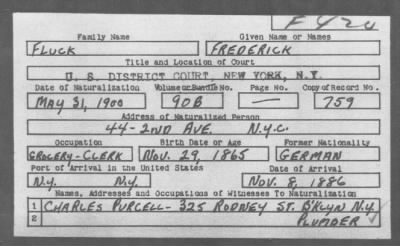 F 420
Family Name Given Name or Names
FLUCK FREDERICK
Title and Location of Court
U. S. DISTRICT COURT, NEW YORK, N.Y.
Date of Naturalization Volume or Bundle No. Page No. Copy of Record No.
MAY 31, 1900 90B — 759
Address of Naturalized Person
44-2ND AVE. N.Y.C.
Occupation Birth Date or Age Former Nationality
GROCERY-CLERK NOV. 29, 1865 GERMAN
Port of Arrival in the United States Date of Arrival
N.Y. N.Y. NOV. 8, 1886
Names, Addresses and Occupations of Witnesses To Naturalization
1 CHARLES PURCELL- 325 RODNEY ST. B'KLYN N.Y.
2 PLUMBER